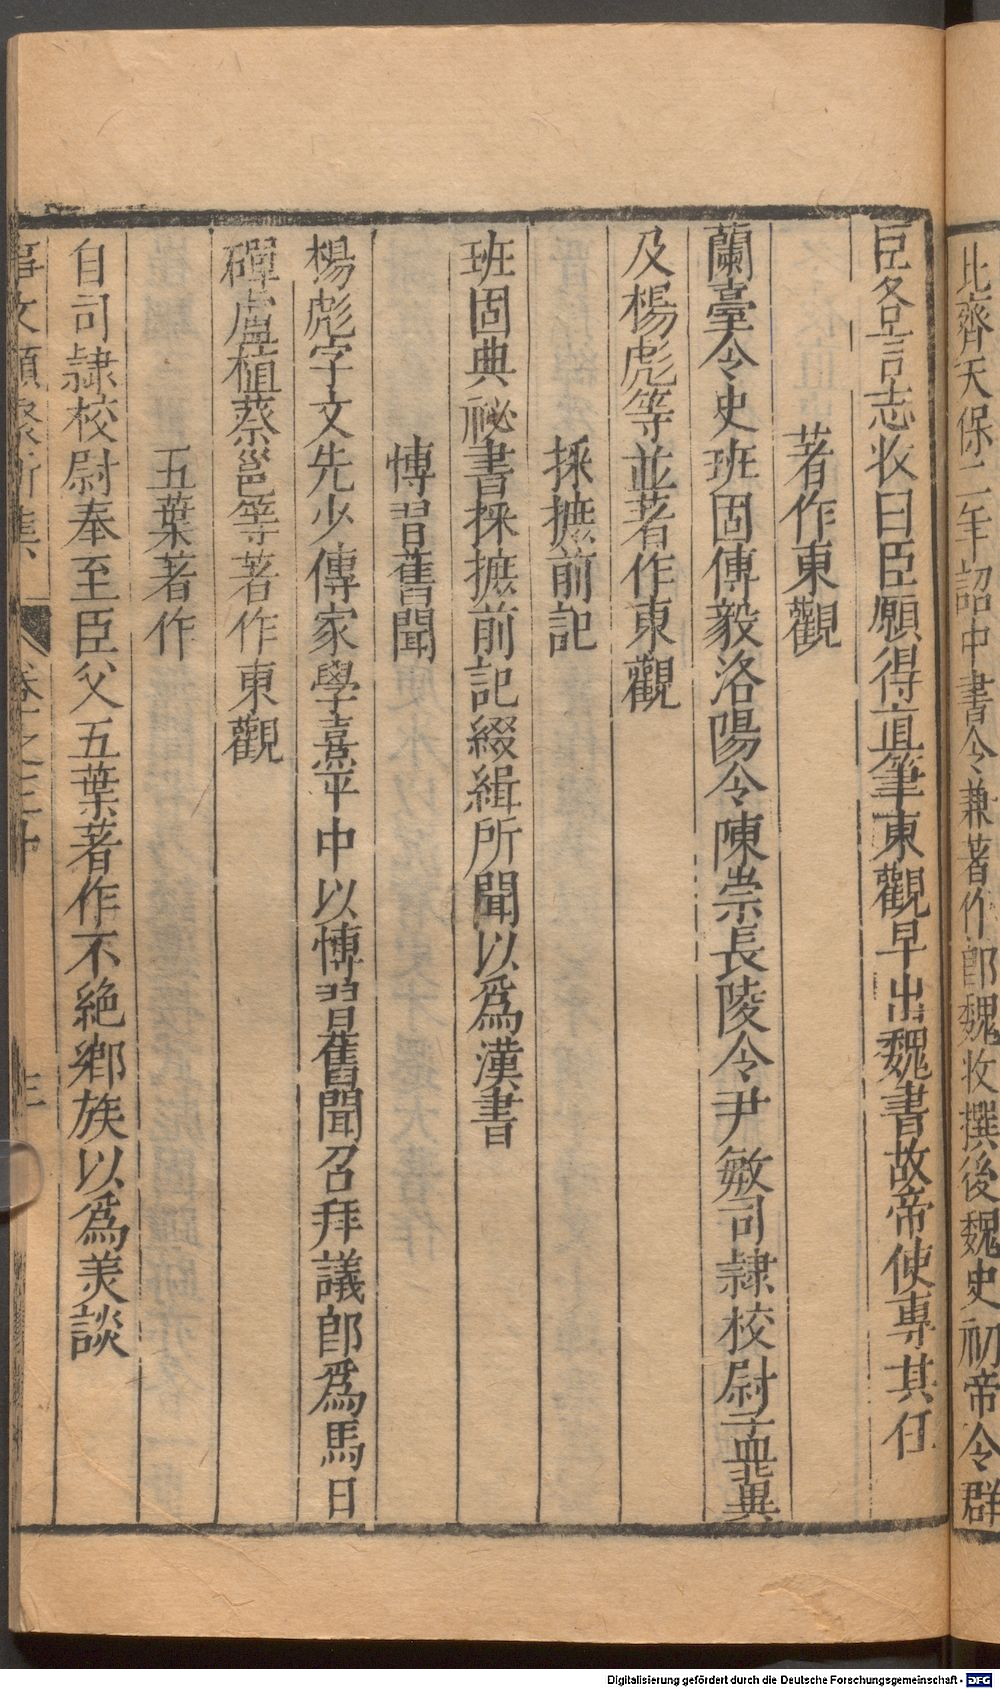 北齊天保二年詔中書令兼著作郎魏收撰後魏史初帝令群
臣各言志收曰臣願得直筆東觀早出魏書故帝使專其任
著作東觀
蘭臺令史班固傅毅洛陽令陳崇長陵令尹敏司隷校尉孟冀
及楊彪等並著作東觀
採摭前記
班固典祕書採摭前記綴緝所聞以爲漢書
愽習舊聞
楊彪字文先少傳家學熹平中以愽習舊聞召拜議郎爲馬日
磾盧植蔡邕等著作東觀
五葉著作
自司隷校尉奉至臣父五葉著作不絶鄉族以爲美談
事文類聚新集 卷之三十 三
Digitalisierung gefördert durch die Deutsche Forschungsgemeinschaft - DFG